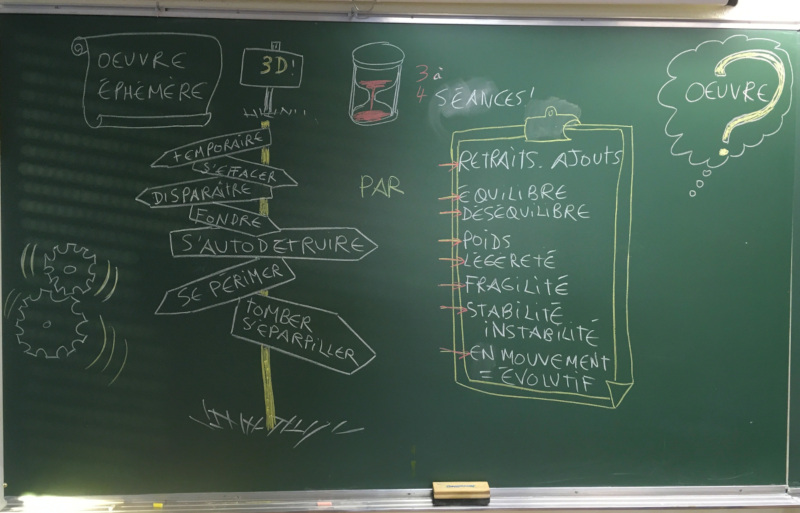 OEUVRE
ÉPHÉMÈRE
3D!
3 à
4 SÉANCES!
OEUVRE ?
TEMPORAIRE
S'EFFACER
DISPARAÎTRE
FONDRE
S'AUTODÉTRUIRE
SE PÉRIMER
TOMBER
S'ÉPARPILLER
PAR
RETRAITS. AJOUTS
ÉQUILIBRE
DÉSÉQUILIBRE
POIDS
LÉGÈRETÉ
FRAGILITÉ
STABILITÉ
INSTABILITÉ
EN MOUVEMENT
= ÉVOLUTIF